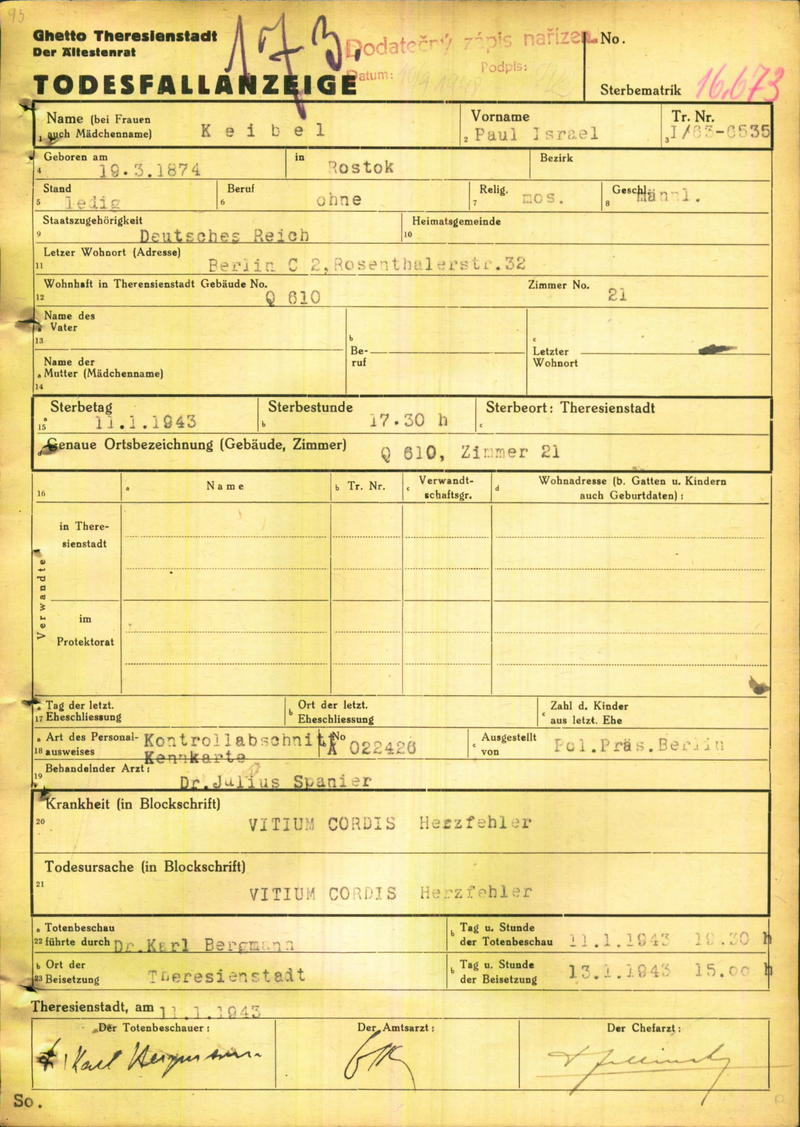 93
Ghetto Theresienstadt
Der Ältestenrat
173.
Dodatečný zápis nařízen
No.
TODESFALLANZEIGE
Datum:
Podpis:
Sterbematrik 16.673
Name (bei Frauen
1 auch Mädchenname) Keibel
Vorname
2 Paul Israel
Tr. Nr.
3 I/83-6535
Geboren am
4 19.3.1874
in Rostok
Bezirk
Stand
5 ledig
Beruf
6 ohne
Relig.
7 mos.
Geschl.
8 männl.
Staatszugehörigkeit
9 Deutsches Reich
Heimatsgemeinde
10
Letzer Wohnort (Adresse)
11 Berlin C 2,Rosenthalerstr.32
Wohnhaft in Therensienstadt Gebäude No.
12 Q 610
Zimmer No. 21
a Name des
Vater
13
b
Be-
ruf
c
Letzter
Wohnort
Name der
a Mutter (Mädchenname)
14
Sterbetag
15 a 11.1.1943
Sterbestunde
b 17.30 h
Sterbeort: Theresienstadt
c
Genaue Ortsbezeichnung (Gebäude, Zimmer) Q 610, Zimmer 21
16
a Name
b Tr. Nr.
c Verwandt-
schaftsgr.
d Wohnadresse (b. Gatten u. Kindern
auch Geburtdaten) :
Verwandte
in There-
sienstadt
im
Protektorat
a Tag der letzt.
17 Eheschliessung
b Ort der letzt.
Eheschliessung
c Zahl d. Kinder
aus letzt. Ehe
a Art des Personal-
18 ausweises Kontrollabschnitt
Kennkarte
b No
A 022426
c Ausgestellt
von Pol.Präs.Berlin
Behandelnder Arzt:
19 Dr.Julius Spanier
Krankheit (in Blockschrift)
20 VITIUM CORDIS Herzfehler
Todesursache (in Blockschrift)
21 VITIUM CORDIS Herzfehler
a Totenbeschau
22 führte durch Dr.Karl Bergmann
b Tag u. Stunde
der Totenbeschau 11.1.1943 19.30 h
b Ort der
23 Beisetzung Theresienstadt
b Tag u. Stunde
der Beisetzung 13.1.1943 15.00 h
Theresienstadt, am 11.1.1943
Der Totenbeschauer :
Der Amtsarzt :
Der Chefarzt :
Karl Bergmann
So.